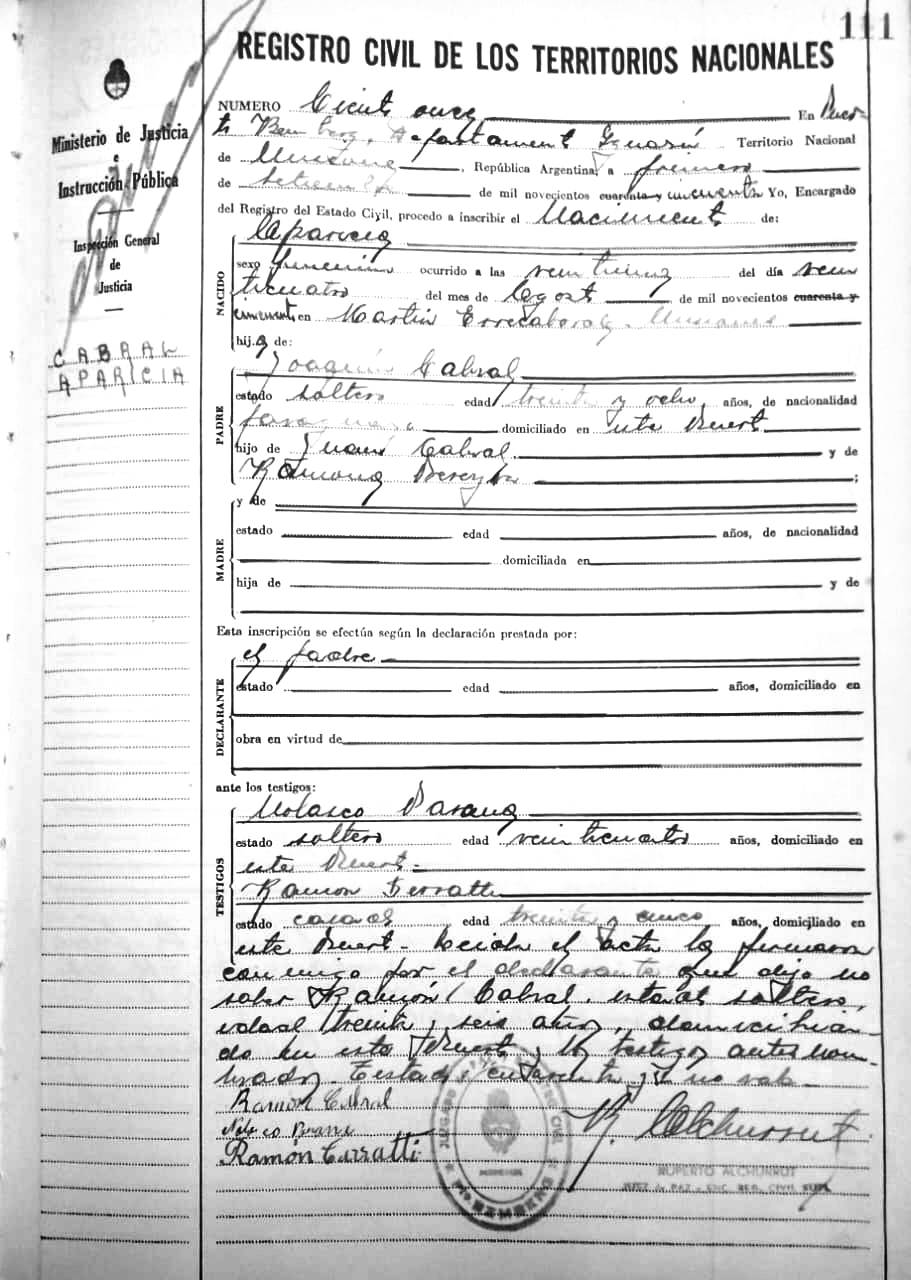 111
REGISTRO CIVIL DE LOS TERRITORIOS NACIONALES
Ministerio de Justicia
e
Instrucción Pública
Inspección General
de
Justicia
CABRAL
APARICIA
NUMERO Ciento once En Puer-
to Bemberg, Departamento Iguazú Territorio Nacional
de Misiones, República Argentina, a primero
de setiembre de mil novecientos cuarenta y cincuenta Yo, Encargado
del Registro del Estado Civil, procedo a inscribir el Nacimiento de:
NACIDO
Aparicia
sexo femenino ocurrido a las veintiuna del día vein
ticuatro del mes de Agosto de mil novecientos cuarenta y
cincuenta en Martin Errecaborde. Misiones
hija de:
PADRE
Joaquín Cabral
estado soltero edad treinta y ocho años, de nacionalidad
paraguaya domiciliado en este Puerto
hijo de Juan Cabral y de
Ramona Pereyra;
MADRE
y de
estado edad años, de nacionalidad
domiciliada en
hija de y de
Esta inscripción se efectúa según la declaración prestada por:
DECLARANTE
el padre
estado edad años, domiciliado en
obra en virtud de
ante los testigos:
TESTIGOS
Nolasco
estado soltero edad veinticuatro años, domiciliado en
este Puerto.
Ramon
estado casado edad treinta y cinco años, domiciliado en
este Puerto. Leida el acta la firmaron
conmigo por el declarante que dijo no
saber Ramón Cabral, estado soltero,
edad treinta y seis años, domicilia-
do en este Puerto y los testigos antes nom-
brados. Testado: "cuarenta y" no vale
Ramón Cabral
Ramón
R. Alchurrut
RUPERTO ALCHURRUT
JUEZ de PAZ - ENC. REG. CIVIL SUPL.
JUZGADO DE PAZ
CIVIL
P. BEMBERG